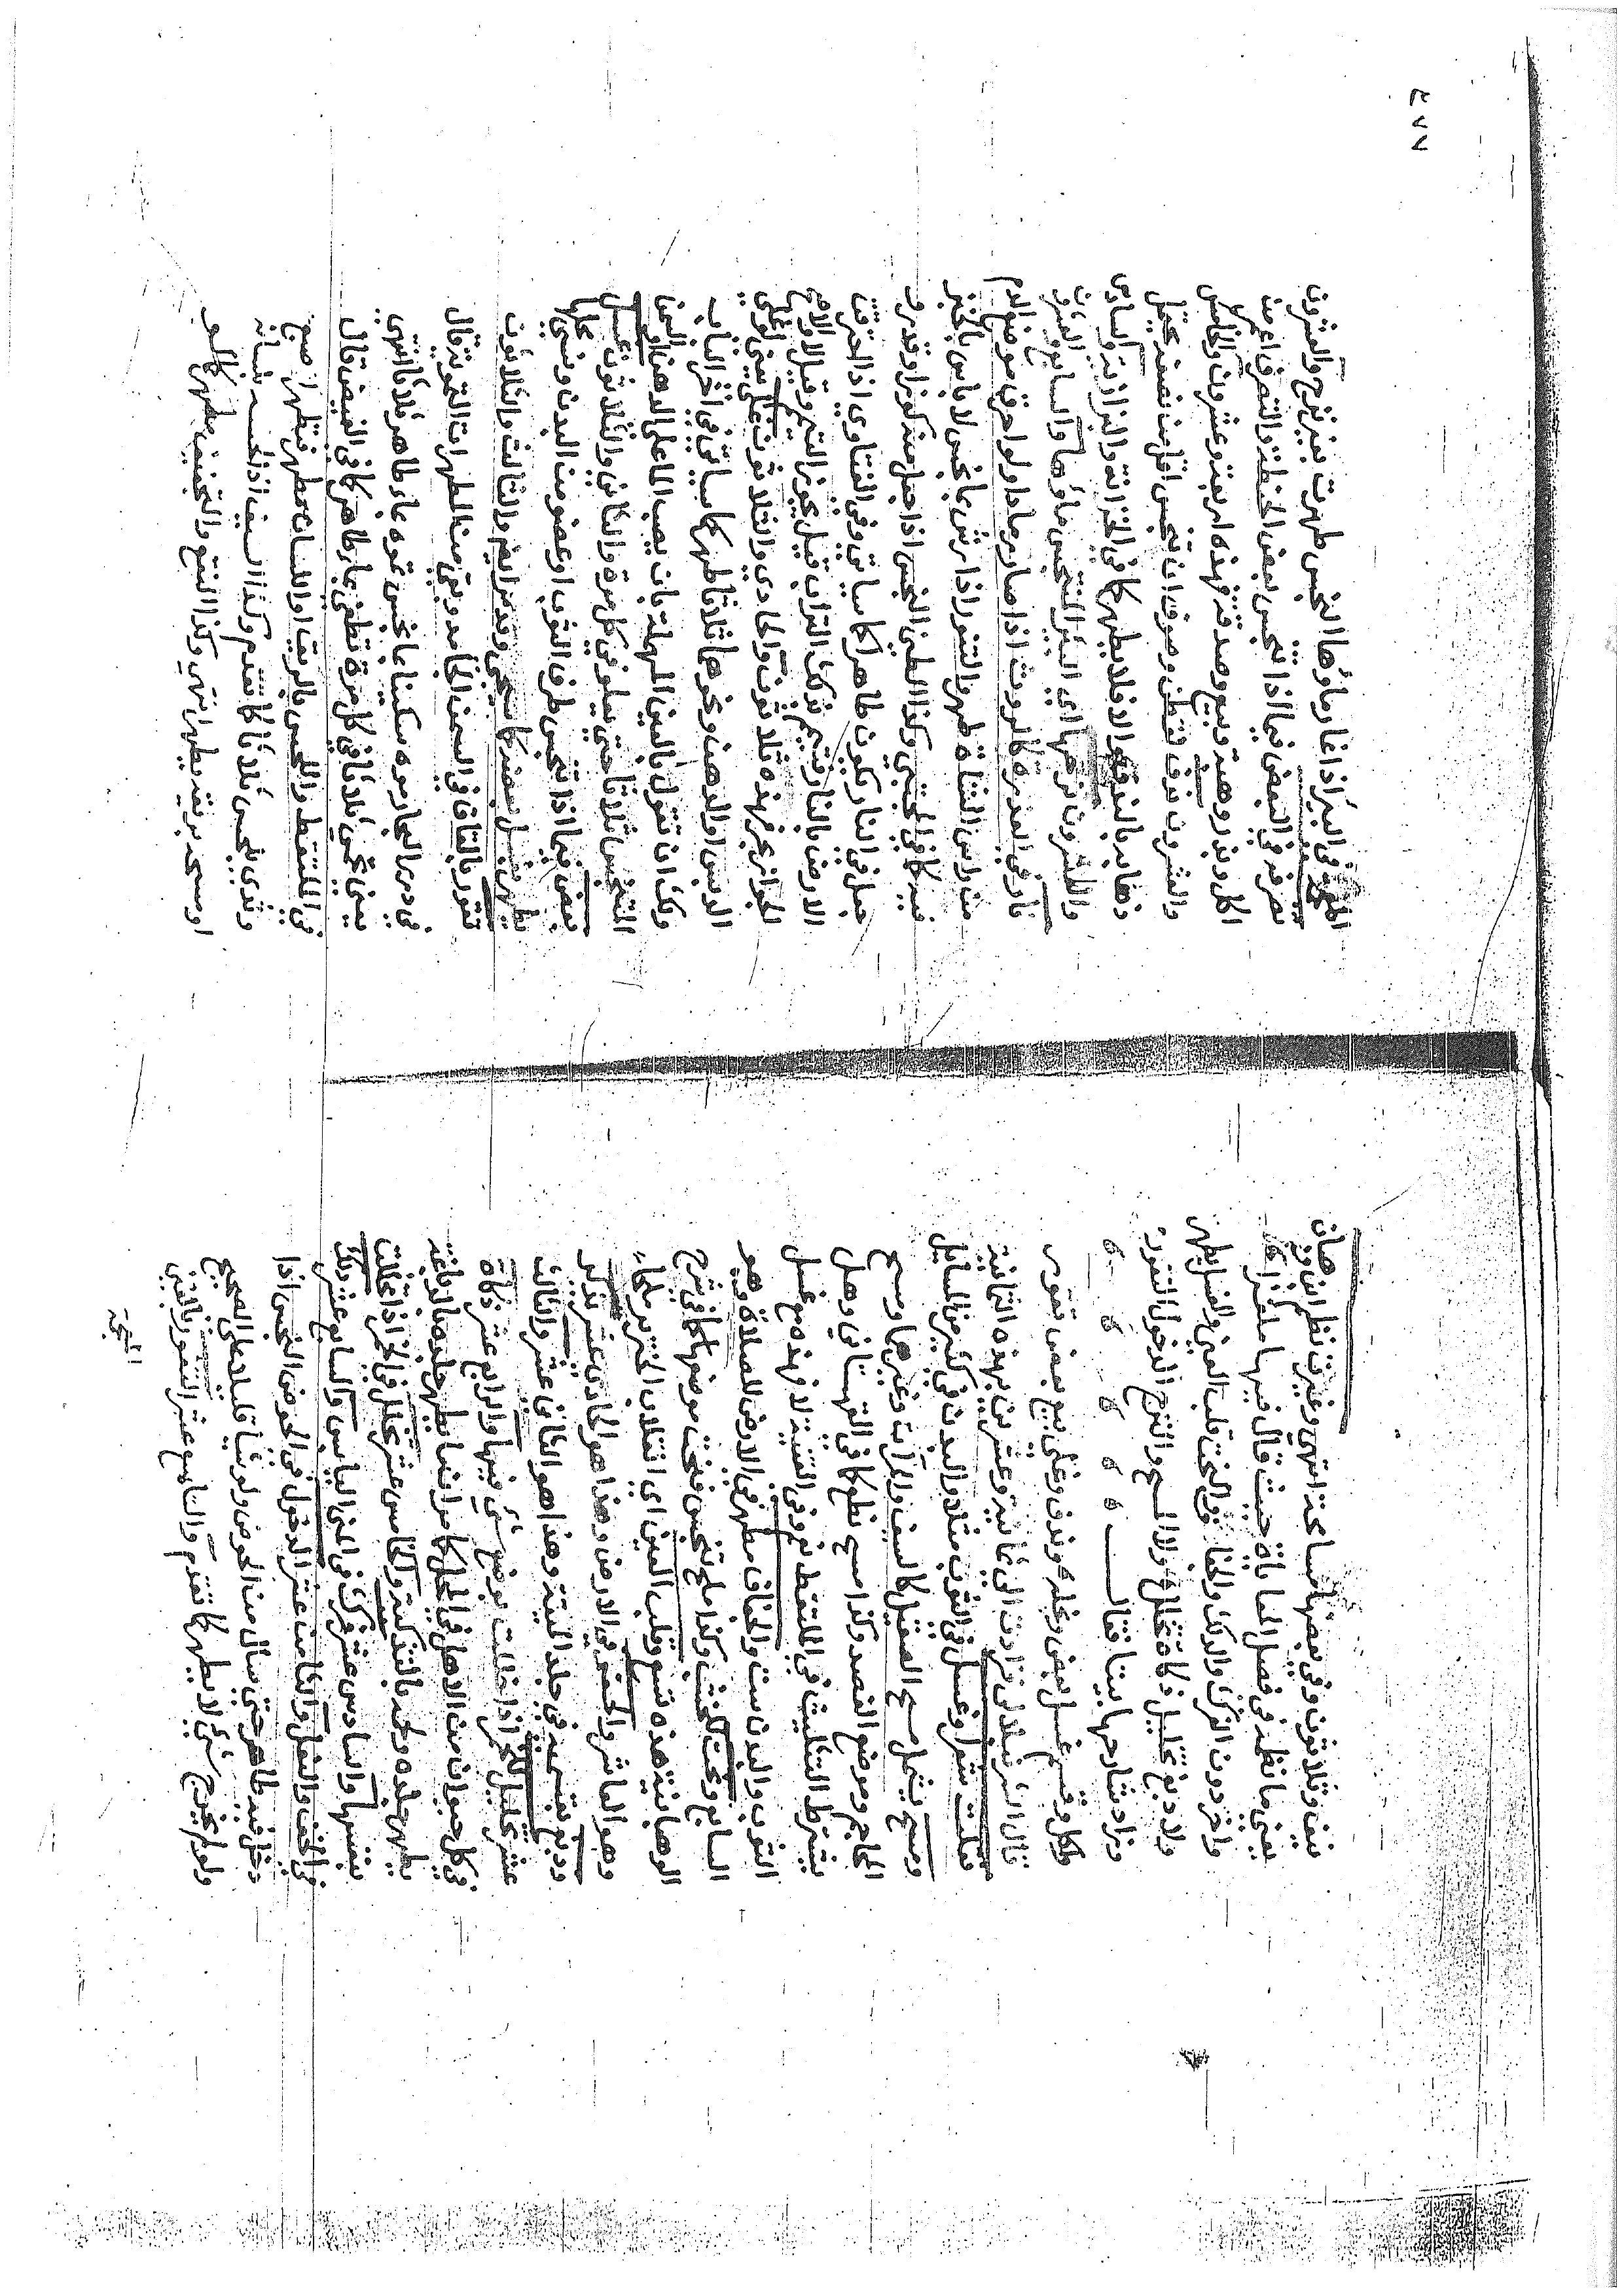 نيف وثلاثون وفي بعضها مسامحة انتهى وغيرت نظم ابن وهبان
يعني ما نظمه في فصل المعاياة حيث قال فيها ملغزا كما
واخر دون الفرك والندف والجفاف والنحت قلب العين والغسل يطهر
ولا دبغ تخليل ذكاة تخلل ولا المسح والنزح الدخول التغور
وزاد شارحها بيتا فقال
واكل وقسم غسل بعض ونحله وندف وغلي بيع بعض تقور
قال الشرنبلالي تزاد الى ثمانية وعشرين بهذه الثمانية
فقلت شعرا وغسل في الثوب مثلا والبدن في كثير من المسايل
ومسح يشمل مسح الصقيل كالسيف والمرآة وغيرها ومسح
المحاجم وموضع الفصد وكذا مسح نطع كما في القهستاني وهل
يشترط التثليث في الملتقط نعم وفي القنية لا فهذه مع غسل
الثوب والبدن ست والجفاف مطهر في الارض للصلاة وهو
السابع ونحت كخشب وكذا ملح تنجس فنحت موضعها كما في شرح
الوهبانية هذه تسع وقلب العين اي انقلاب الخنزير ملحا
وهو العاشر والحفر في الارض وهذا هو الحادي عشر تذكر
ودبغ بقسميه في جلد الميتة وهذا هو الثاني عشر والثالث
عشر تخليل الخمر اذا خللت بوضع شيء فيها والرابع عشر ذكاة
في كل حيوان من الاهل في المحل كما مر انها تطهر جلده ما لدباغة
يطهر جلده ولحمه بالتذكية والخامس عشر تخلل في الخمر اذا تخللت
بنفسها والسادس عشر فرك في المني اليابس والسابع عشر دلك
في الخف والنعل والثامن عشر الدخول في الحوض النجس اذا
دخل فيه طاهر حتى سال من الحوض ولو شيأ قليلا على الصحيح
ولو لم يخرج شيء لا يطهر كما تقدم والتاسع عشر التغور بالغين
٢٧٧
المعجمة في البئر اذا غار ماؤها النجس طهرت بغير نزح والعشرون
تصرفه في البعض فيما اذا تنجس بعض الحنطة والتصرف اعم من
اكل ونذر وهبة وبيع وصدقة فهذه اربعة وعشرون والخامس
والعشرون ندف قطن وصوف ان تنجس اقل من نصفه يحتمل
ذهابه بالندف والا فلا يطهر كما في الخزانة والبزازية والسادس
والعشرون نزحها اي البئر المتنجس ماؤها والسابع والعشرون
نار في العذرة كالروث اذا صار رمادا ولو احرق موضع الدم
من راس الشاة طهر والتنور اذا رش بماء نجس لا باس بالخبز
فيه كما في المجتبى وكذا الطين النجس اذا جعل منه كوز او قدر و
جعل في النار يكون طاهرا كما سياتي وفي الفتاوى اذا احترقت
الارض بالنار فتيمم بذلك التراب قيل يجوز التيمم وقيل لا والاصح
الجواز بحر فهذه ثلاثون والحادي والثلاثون غلي يعني لو غلى
الدبس او الدهن ونحوها ثلاثا طهر كما سياتي في اخر الباب
ولك ان تقول بالغين المهملة بان يصب الماء على الدهن او السمن
المتنجس ثلاثا حتى يعلو في كل مرة والثاني والثلاثون غسل
بعض فيما اذا تنجس طرف الثوب او عضو من البدن ونسي محله
يطهر بغسل بعضه كما سيجي وقد مر ايضا والثالث والثلاثون
تقور بالقاف في السمن الجامد وبقي من المطهرات التمويه قال
في درر البحار موه سكينا بماء نجس تموه بماء طاهر ثلاثا انتهى
يعني يحمى ثلاثا في كل مرة تطفى بماء طاهر كما في الفيض قال
في الملتقط واللحس بالريق او اللسان مطهر فتطهر اصبع
وثدي بلحس ثلاثا كما تقدم وكذا السيف اذا لحسه بلسانه
او مسحه بريقه يطهر انتهى وكذا النتح والتجفيف مطهر كالعصر